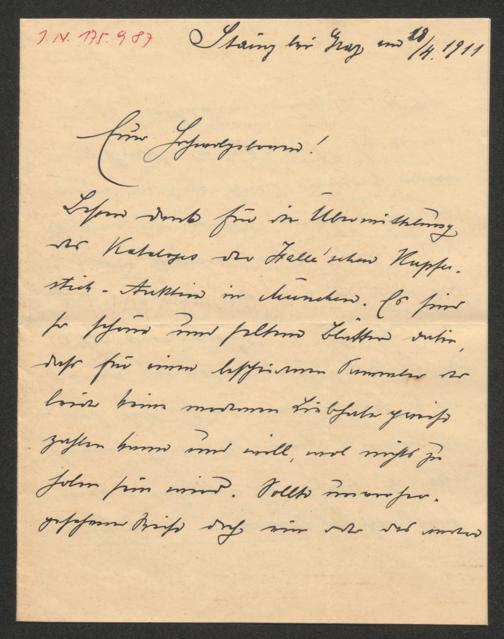 J. N. 175.987
Stainz bei Graz am 18/4. 1911
Euer Hochwolgeboren!
Besten Dank für die Übermittelung
des Kataloges der Halle'schen Kupfer-
stich-Auktion in München. Es sind
so schöne und seltene Blätter darin,
daß für einen bescheidenen Sammler der
leider keine modernen Liebhaberpreise
zahlen kann und will, wol nichts zu
holen sein wird. Sollte unvorher-
gesehener Weise doch ein oder das andere